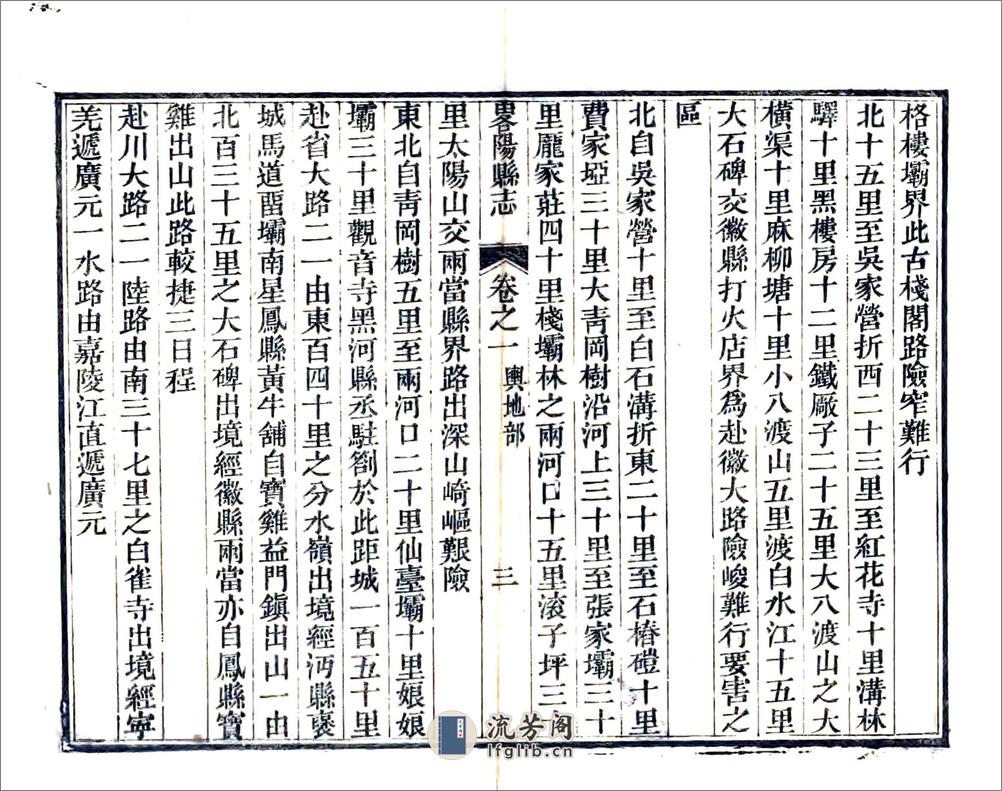 格樓壩界此古棧閣路險窄難行
北十五里至吳家營折西二十三里至紅花寺十里溝林
驛十里黑樓房十二里鐵厰子二十五里大八渡山之大
橫渠十里麻柳塘十里小八渡山五里渡白水江十五里
大石碑交徽縣打火店界為赴徽大路險峻難行要害之
區
北自吳家營十里至白石溝折東二十里至石樁磑十里
費家埡三十里大青岡樹沿河上三十里至張家壩三十
里龐家莊四十里棧壩林之兩河口十五里滾子坪三十
畧陽縣志
卷之一
輿地部
三
里太陽山交兩當縣界路出深山崎嶇艱險
東北自青岡樹五里至兩河口二十里仙臺壩十里娘娘
壩三十里觀音寺黑河縣丞駐劄於此距城一百五十里
赴省大路二一由東百四十里之分水嶺出境經沔縣褒
城馬道畱壩南星鳳縣黃牛舖自寶雞益門鎮出山一由
北百三十五里之大石碑出境經徽縣兩當亦自鳳縣寶
雞出山此路較捷三日程
赴川大路二一陸路由南三十七里之白雀寺出境經寧
羌遞廣元一水路由嘉陵江直遞廣元
流芳阁
lfglib.cn